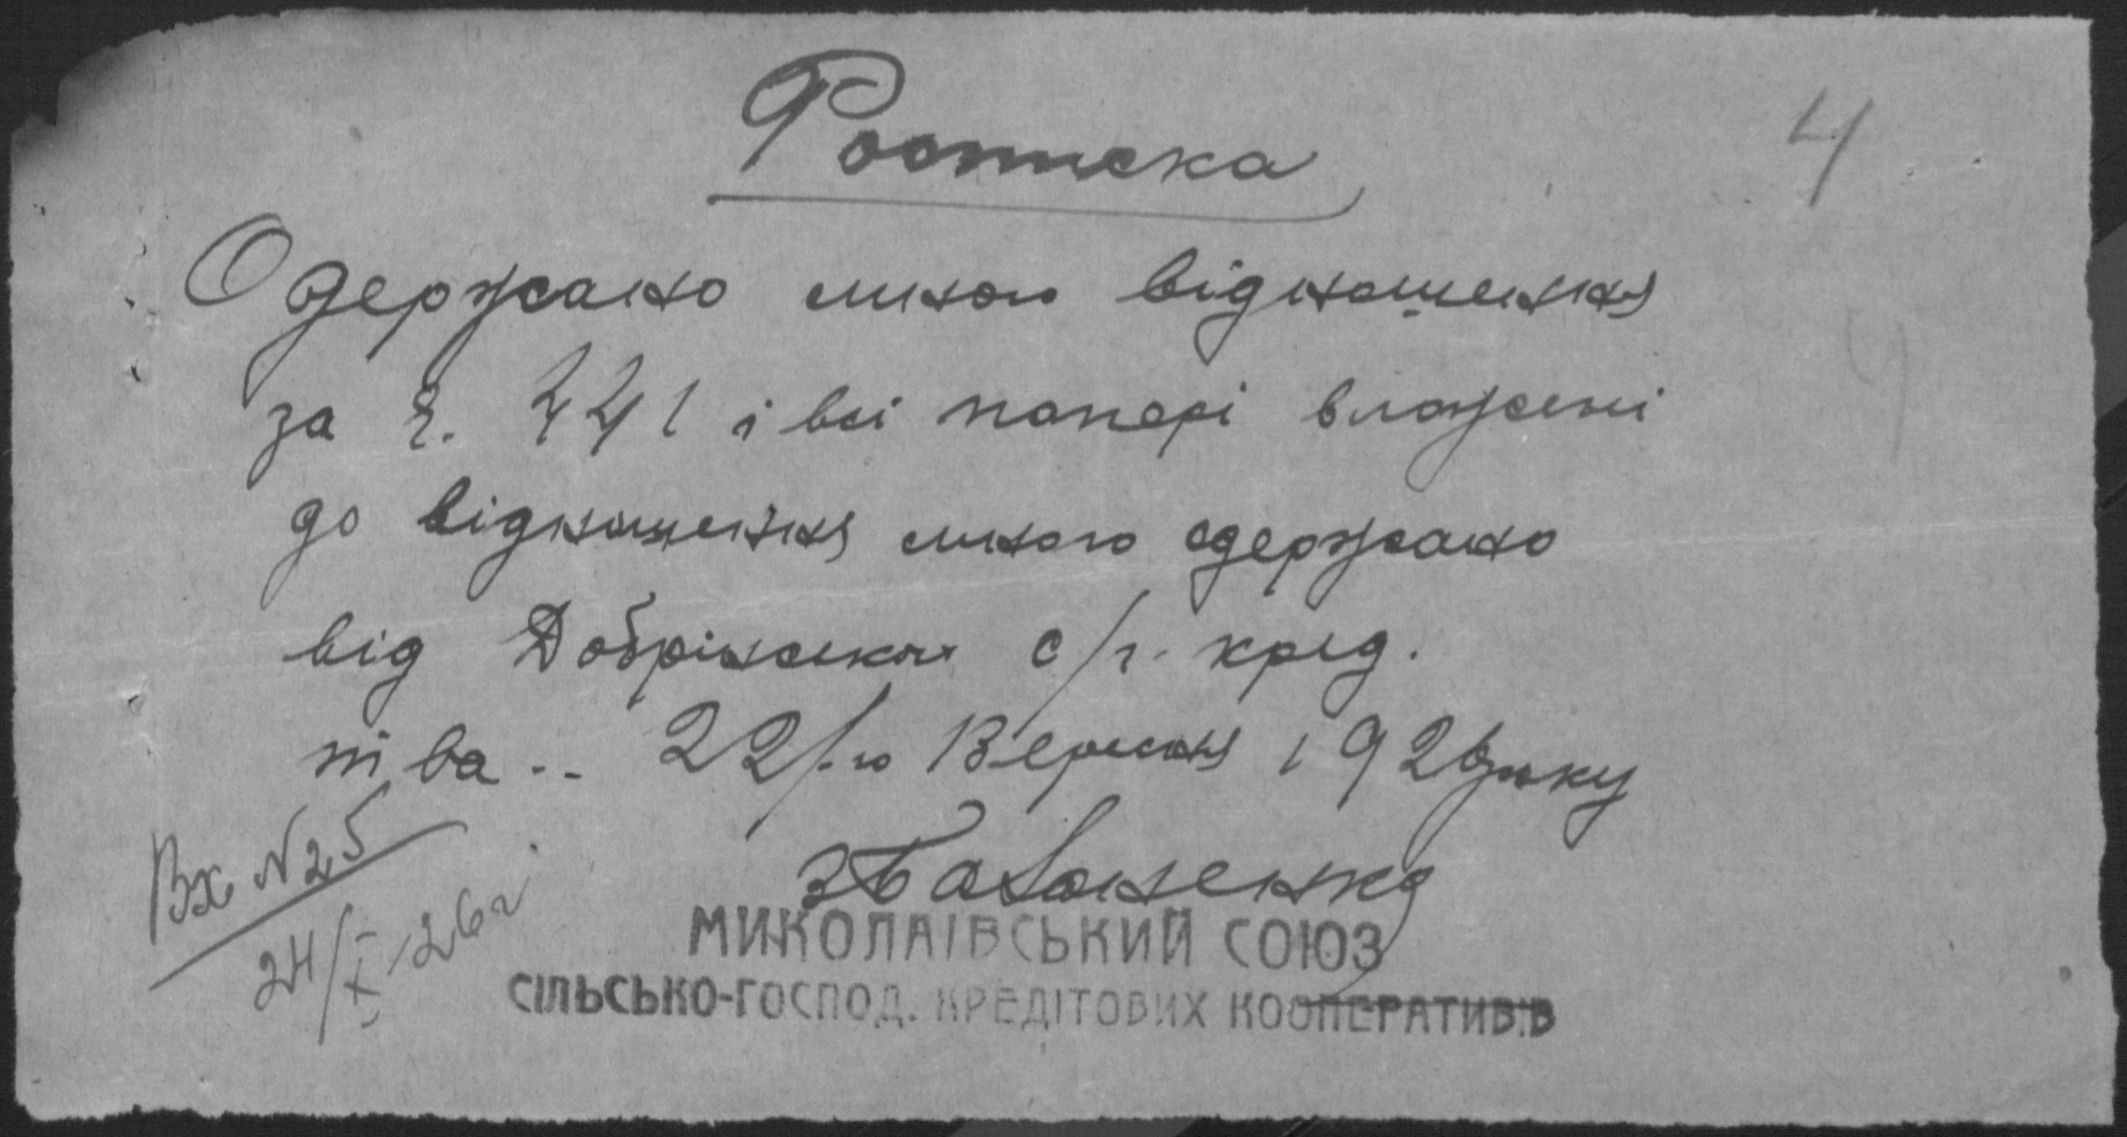 Росписка
4
Одержано мною відношення
за Ч. 441 і всі папері вложені
до відношення мною одержано
від Добрінської с/г. кред.
т, ва .. 22/го Вересня 1926 року
Вх N 25
24/IX-26 г.
МИКОЛАІВСЬКИЙ СОЮЗ
СІЛЬСЬКО-ГОСПОД. КРЕДІТОВИХ КООПЕРАТИВІВ